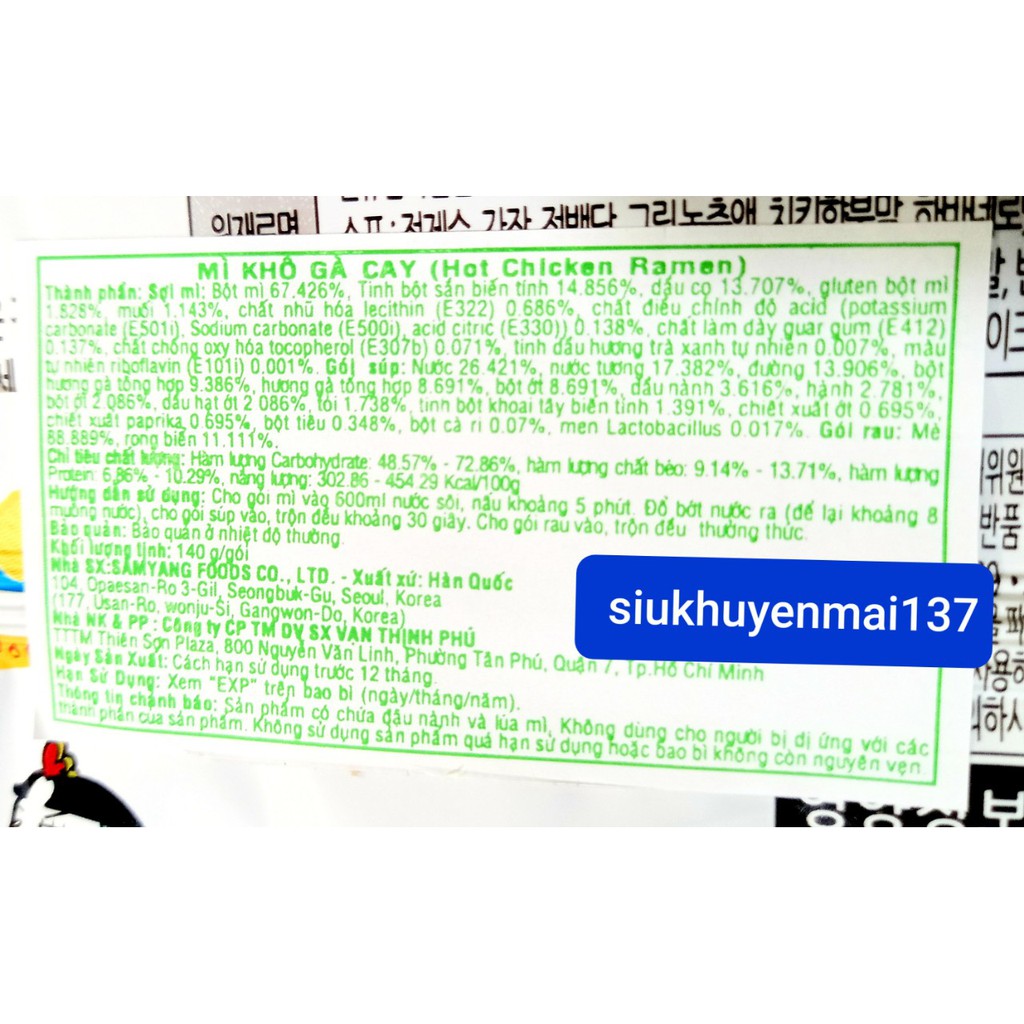 MÌ KHÔ GÀ CAY (Hot Chicken Ramen)
Thành phần: Sợi mì: Bột mì 67.426%, Tinh bột sắn biến tính 14.856%, dầu cọ 13.707%, gluten bột mì
1.528%, muối 1.143%, chất nhũ hóa lecithin (E322) 0.686%, chất điều chỉnh độ acid (potassium
carbonate (E501i), Sodium carbonate (E500i), acid citric (E330)) 0.138%, chất làm dày guar gum (E412)
0.137%, chất chống oxy hóa tocopherol (E307b) 0.071%, tinh dầu hương trà xanh tự nhiên 0.007%, màu
tự nhiên riboflavin (E101i) 0.001%. Gói súp: Nước 26.421%, nước tương 17.382%, đường 13.906%, bột
hương gà tổng hợp 9.386%, hương gà tổng hợp 8.691%, bột ớt 8.691%, dầu nành 3.616%, hành 2.781%,
bột ớt 2.086%, dầu hạt ớt 2 086%, tỏi 1.738%, tinh bột khoai tây biến tính 1.391%, chiết xuất ớt 0.695%,
chiết xuất paprika 0 695%, bột tiêu 0.348%, bột cà ri 0.07%, men Lactobacillus 0.017%. Gói rau: Mè
88.889%, rong biển 11.111%.
Chỉ tiêu chất lượng: Hàm lượng Carbohydrate: 48.57% - 72.86%, hàm lượng chất béo: 9.14% - 13.71%, hàm lượng
Protein: 6.86% - 10.29%, năng lượng: 302.86 - 454 29 Kcal/100g
Hướng dẫn sử dụng: Cho gói mì vào 600ml nước sôi, nấu khoảng 5 phút. Đổ bớt nước ra (để lại khoảng 8
muỗng nước), cho gói súp vào, trộn đều khoảng 30 giây. Cho gói rau vào, trộn đều thưởng thức.
Bảo quản: Bảo quản ở nhiệt độ thường.
Khối lượng tịnh: 140 g/gói
Nhà SX:SAMYANG FOODS CO., LTD. - Xuất xứ: Hàn Quốc
104, Opaesan-Ro 3-Gil, Seongbuk-Gu, Seoul, Korea
(177, Usan-Ro, wonju-Si, Gangwon-Do, Korea)
Nhà NK & PP : Công ty CP TM DV SX VẠN THỊNH PHÚ
TTTM Thiên Sơn Plaza, 800 Nguyễn Văn Linh, Phường Tân Phú, Quận 7, Tp.Hồ Chí Minh
Ngày Sản Xuất: Cách hạn sử dụng trước 12 tháng.
Hạn Sử Dụng: Xem "EXP" trên bao bì (ngày/tháng/năm).
Thông tin cảnh báo: Sản phẩm có chứa đậu nành và lúa mì, Không dùng cho người bị dị ứng với các
thành phần của sản phẩm. Không sử dụng sản phẩm quá hạn sử dụng hoặc bao bì không còn nguyên vẹn
siukhuyenmai137